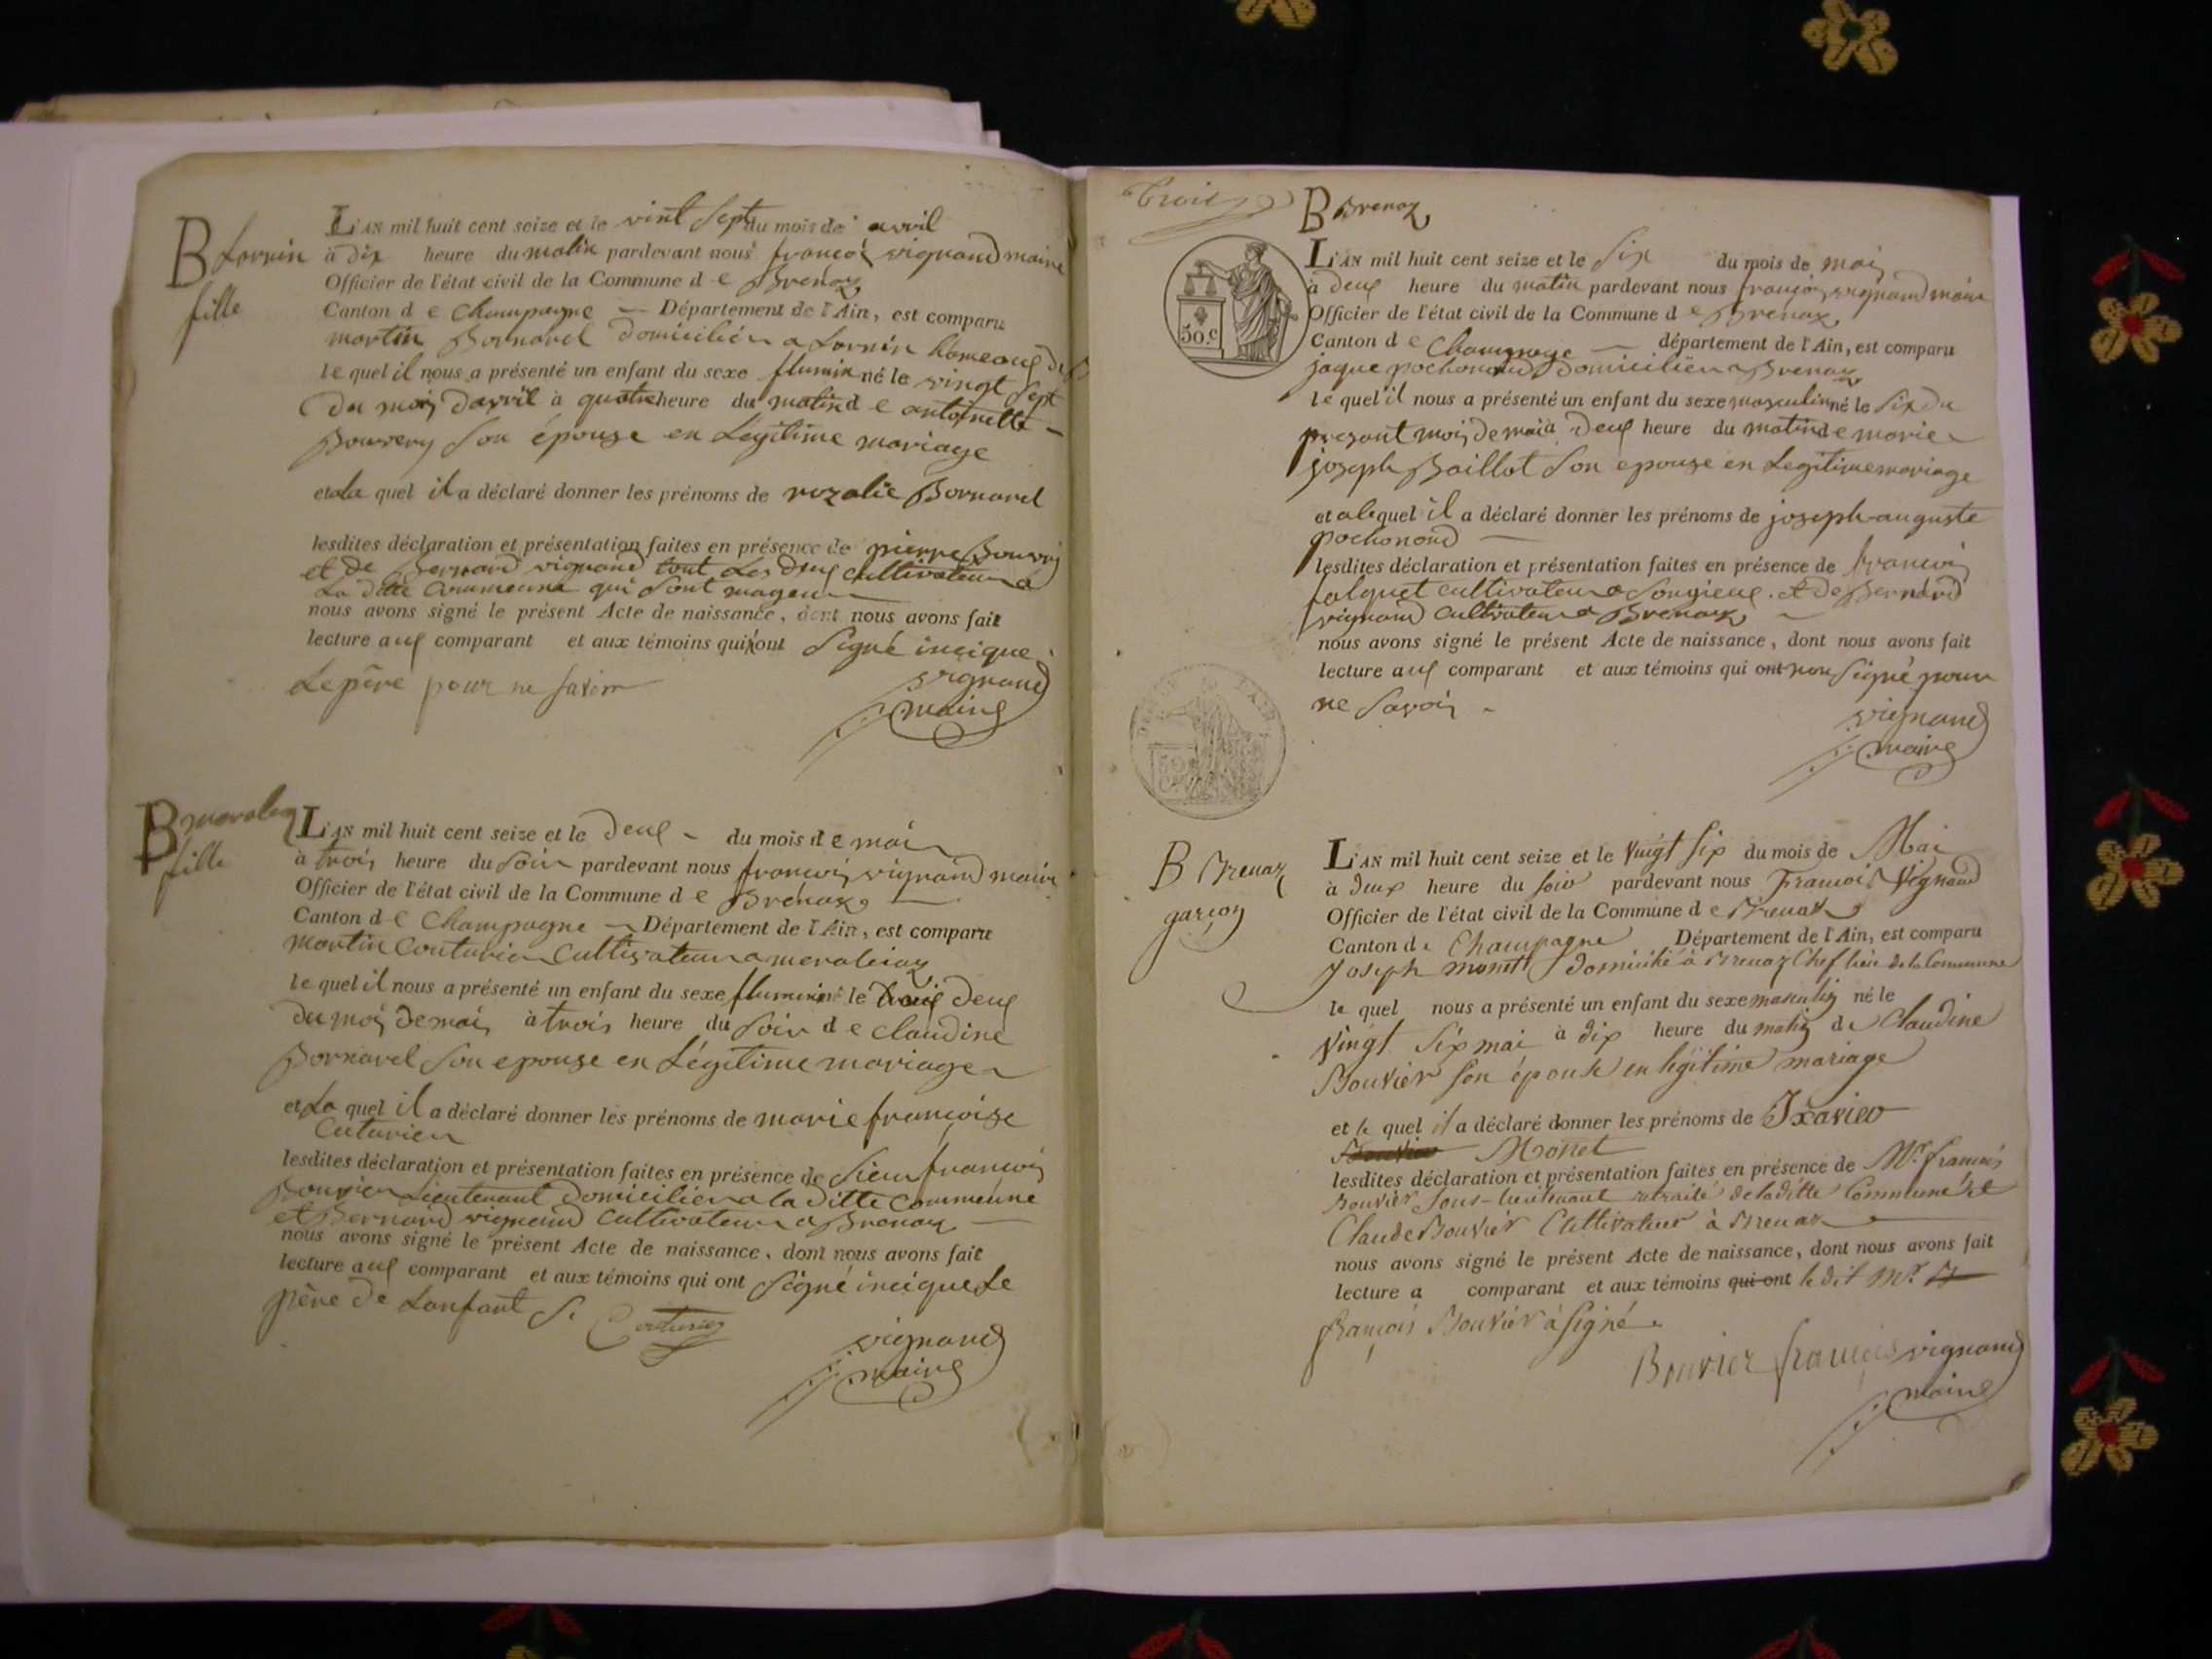 B Lornin
fille
L'AN mil huit cent seize et le vint sept du mois de avril
à dix heure du matin pardevant nous françois vignand maire
Officier de l'état civil de la Commune d e Brenaz
Canton d e Champagne — Département de l'Ain, est comparu
martin Bornarel domicilié a Lornin hameaux de
le quel il nous a présenté un enfant du sexe fluminin né le vingt sept
du mois davril à quatre heure du matin d e antoinette
Bouvery son épouse en Légitime mariage
et a la quel il a déclaré donner les prénoms de rozalie Bornarel
lesdites déclaration et présentation faites en présence de pierre Bouvry
et de Bernard vignand tout les deux cultivateur a
La ditte Commeune qui sont mageur
nous avons signé le présent Acte de naissance, dont nous avons fait
lecture aux comparant et aux témoins qui ont signé incique
Le père pour ne savoir
vignand
maire
B meraleaz
fille
L'AN mil huit cent seize et le deux du mois d e mai
à trois heure du soir pardevant nous françois vignand maire
Officier de l'état civil de la Commune d e Brenaz
Canton d e Champagne — Département de l'Ain, est comparu
martin Couturier Cultivateur a meraleiaz
le quel il nous a présenté un enfant du sexe fluminin né le trois deux
du mois de mai à trois heure du soir d e Claudine
Bornarel son epouse en Légitime mariage
et La quel il a déclaré donner les prénoms de marie françoise
Cuturier
lesdites déclaration et présentation faites en présence de sieur françois
Bouvier Lieutenant domicilier a la ditte commeune
et Bernard vignand cultivateur a Brenaz
nous avons signé le présent Acte de naissance, dont nous avons fait
lecture aux comparant et aux témoins qui ont signé incique Le
père de Lanfant
Couturier
vignand
maire
Trois
B Brenaz
50.c
L'AN mil huit cent seize et le six du mois de mai
à deux heure du matin pardevant nous françois vignand maire
Officier de l'état civil de la Commune d e Brenaz
Canton d e Champagne — département de l'Ain, est comparu
jaque pochonand domicilier a Brenaz
le quel il nous a présenté un enfant du sexe masculin né le six du
presant mois de mai à deux heure du matin d e marie
joseph Baillot son epouse en Legitime mariage
et a le quel il a déclaré donner les prénoms de joseph auguste
pochonand
lesdites déclaration et présentation faites en présence de françois
falquet cultivateur a Songieux et de Bernard
vignand cultivateur a Brenaz
nous avons signé le présent Acte de naissance, dont nous avons fait
lecture aux comparant et aux témoins qui ont non signé pour
ne savoir
vignand
maire
B Brenaz
garçon
L'AN mil huit cent seize et le vingt six du mois de Mai
à deux heure du soir pardevant nous François Vignand
Officier de l'état civil de la Commune d e Brenaz
Canton de Champagne Département de l'Ain, est comparu
Joseph monett domicilié à Brenaz Chef lieu de la Commune
le quel nous a présenté un enfant du sexe masculin né le
vingt six mai à dix heure du matin de Claudine
Bouvier son épouse en légitime mariage
et le quel il a déclaré donner les prénoms de Ixavier
Bouvier Monet
lesdites déclaration et présentation faites en présence de Mr. françois
Bouvier sous-lieutenant retraité de la ditte Commune et
Claude Bouvier Cultivateur à Brenaz
nous avons signé le présent Acte de naissance, dont nous avons fait
lecture a comparant et aux témoins qui ont le dit Mr.
françois Bouvier à signé
Bouvier françois vignand
maire